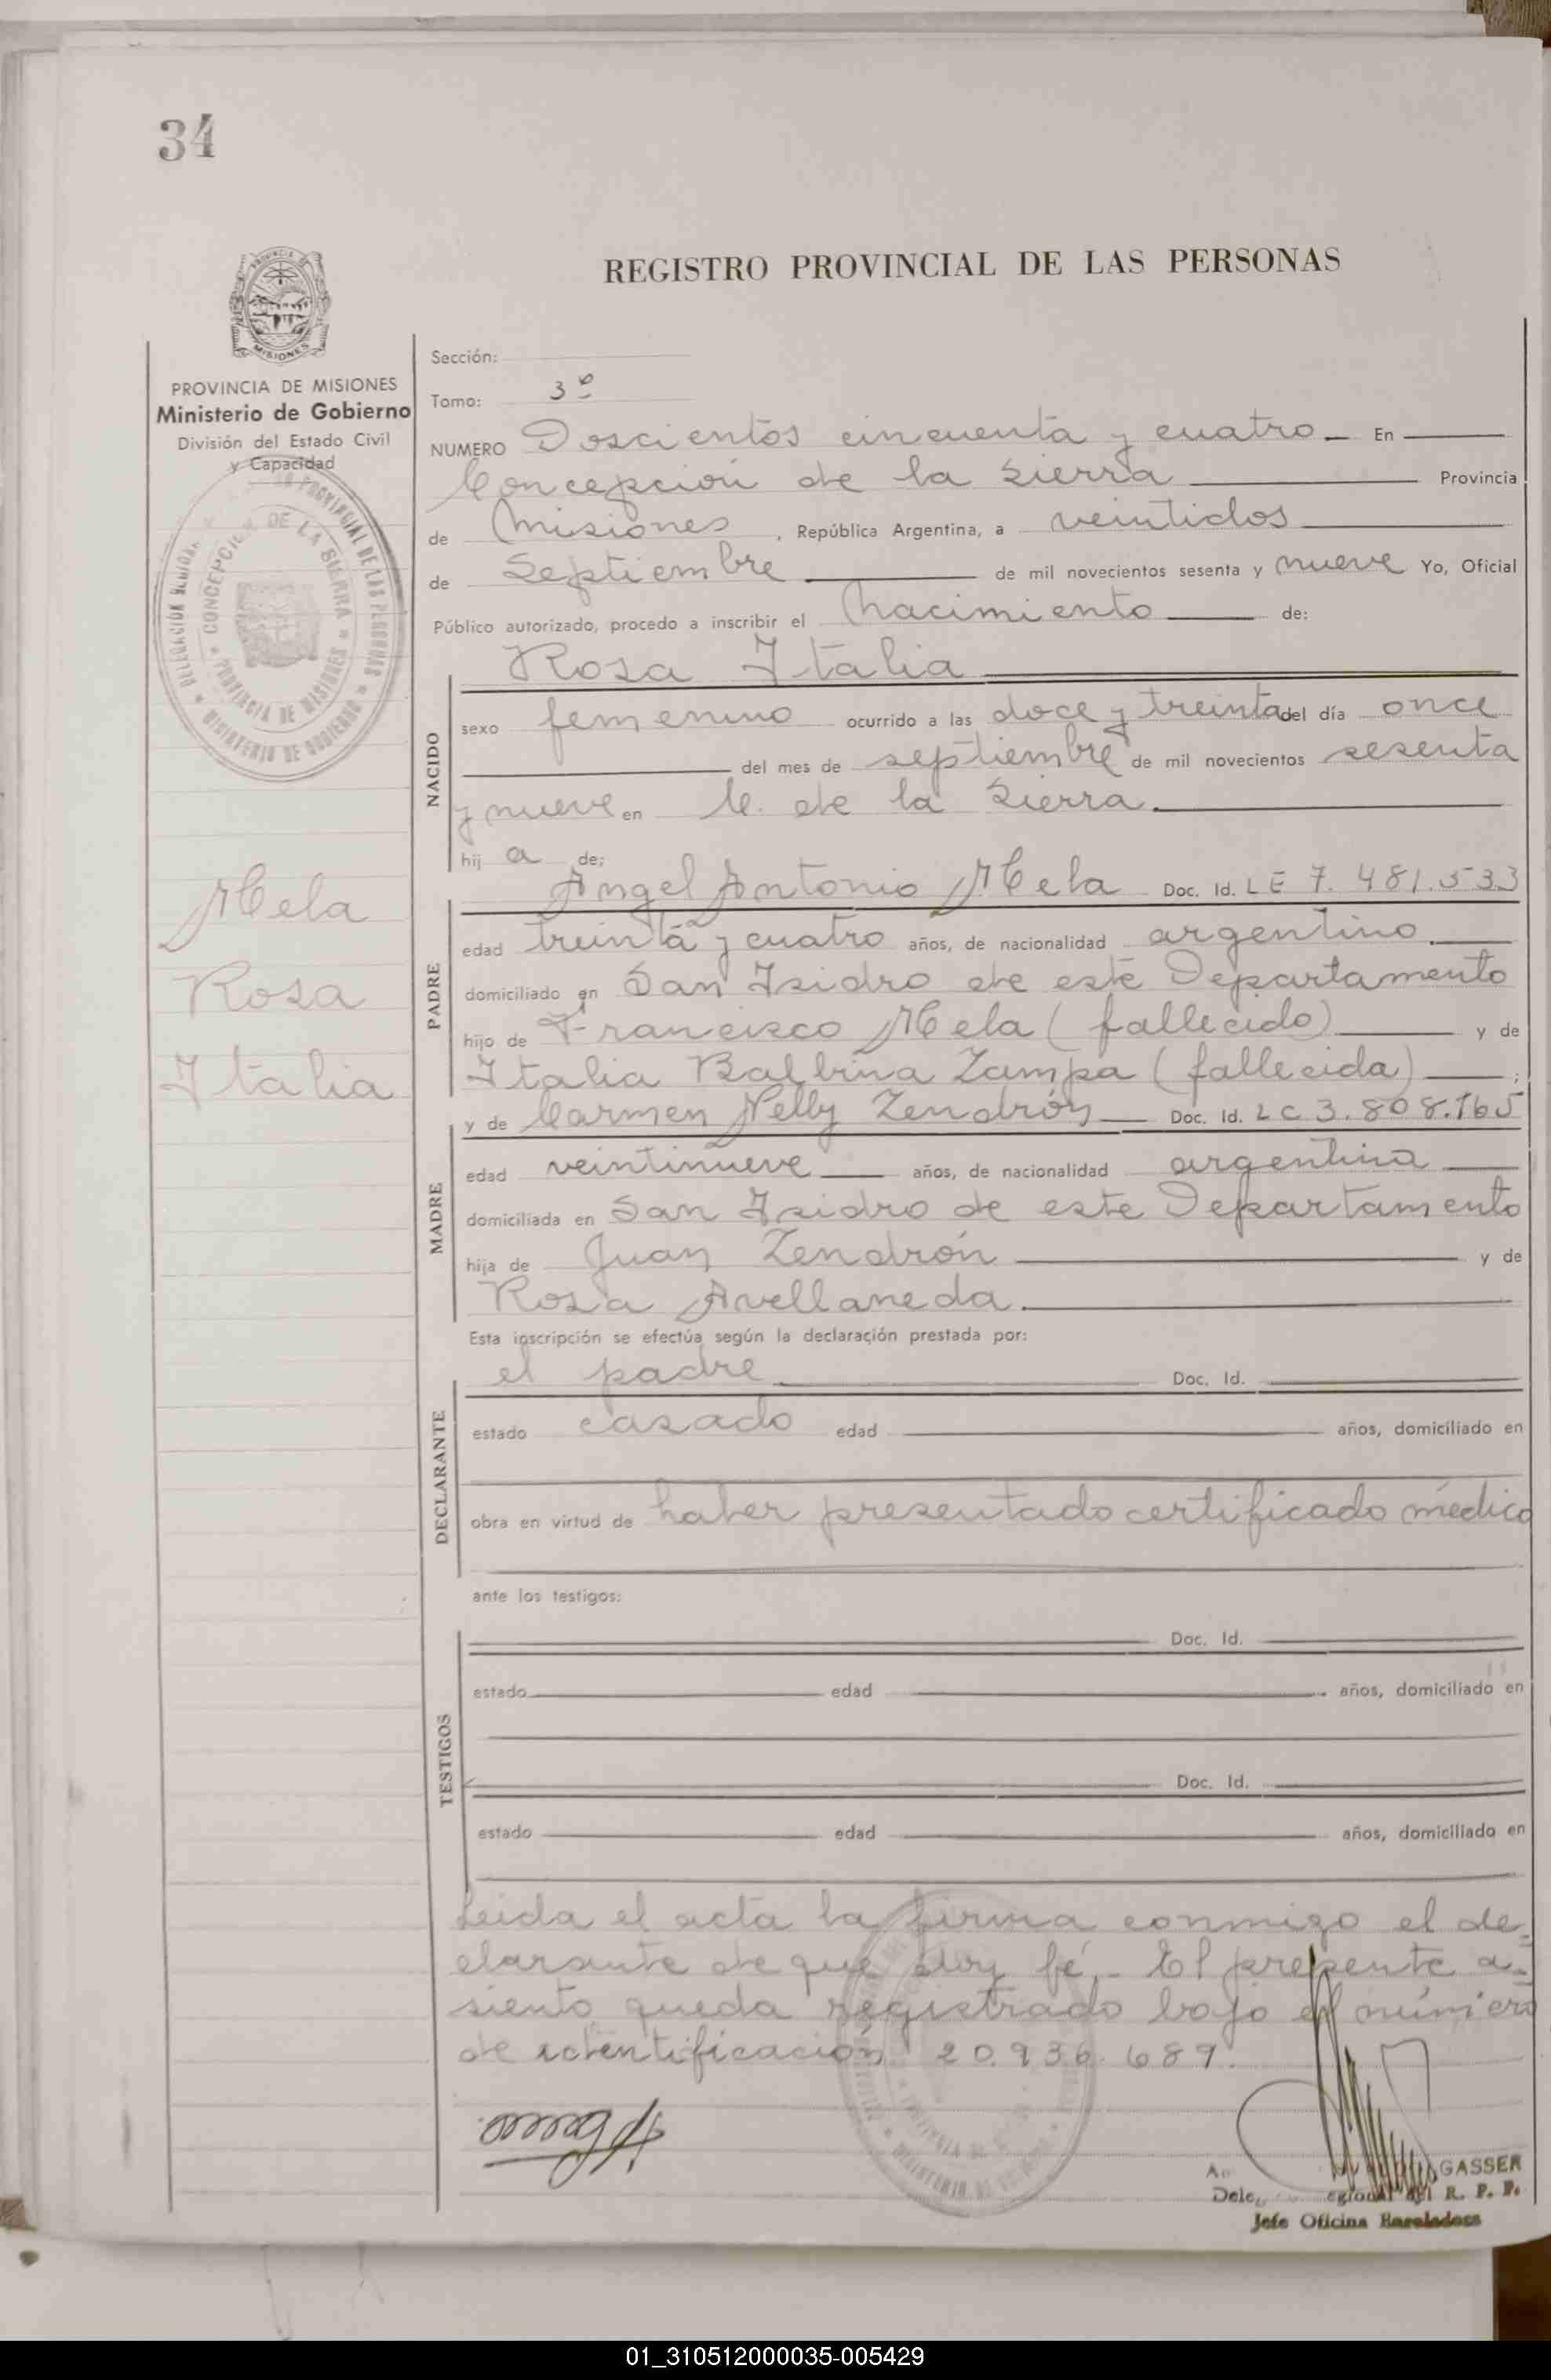 34
REGISTRO PROVINCIAL DE LAS PERSONAS
MISIONES
PROVINCIA DE MISIONES
Ministerio de Gobierno
División del Estado Civil
y Capacidad
CONCEPCION DE LA SIERRA
PROVINCIA DE MISIONES
MINISTERIO DE GOBIERNO
Mela
Rosa
Italia
Sección:
Tomo: 3º
NUMERO Doscientos cincuenta y cuatro En
Concepción de la Sierra Provincia
de Misiones, República Argentina, a veintidos
de Septiembre de mil novecientos sesenta y nueve Yo, Oficial
Público autorizado, procedo a inscribir el Nacimiento de:
Rosa Italia
NACIDO
sexo femenino ocurrido a las doce y treinta del día once
del mes de septiembre de mil novecientos sesenta
y nueve en C. de la Sierra.
hij a de:
Angel Antonio Mela Doc. Id. LE 7.481.533
PADRE
edad treinta y cuatro años, de nacionalidad argentino
domiciliado en San Isidro de este Departamento
hijo de Francisco Mela (fallecido) y de
Italia Balbina Zampa (fallecida) ;
y de Carmen Nelly Zendrón Doc. Id. LC 3.808.765
MADRE
edad veintinueve años, de nacionalidad argentina
domiciliada en San Isidro de este Departamento
hija de Juan Zendrón y de
Rosa Avellaneda.
Esta inscripción se efectúa según la declaración prestada por:
el padre Doc. Id.
DECLARANTE
estado casado edad años, domiciliado en
obra en virtud de haber presentado certificado médico
ante los testigos:
TESTIGOS
Doc. Id.
estado edad años, domiciliado en
Doc. Id.
estado edad años, domiciliado en
Leida el acta la firma conmigo el de-
clarante de que doy fé.- El presente a-
siento queda registrado bajo el número
de identificación 20.936.689.
GASSER
R. P. P.
Jefe Oficina
01_310512000035-005429